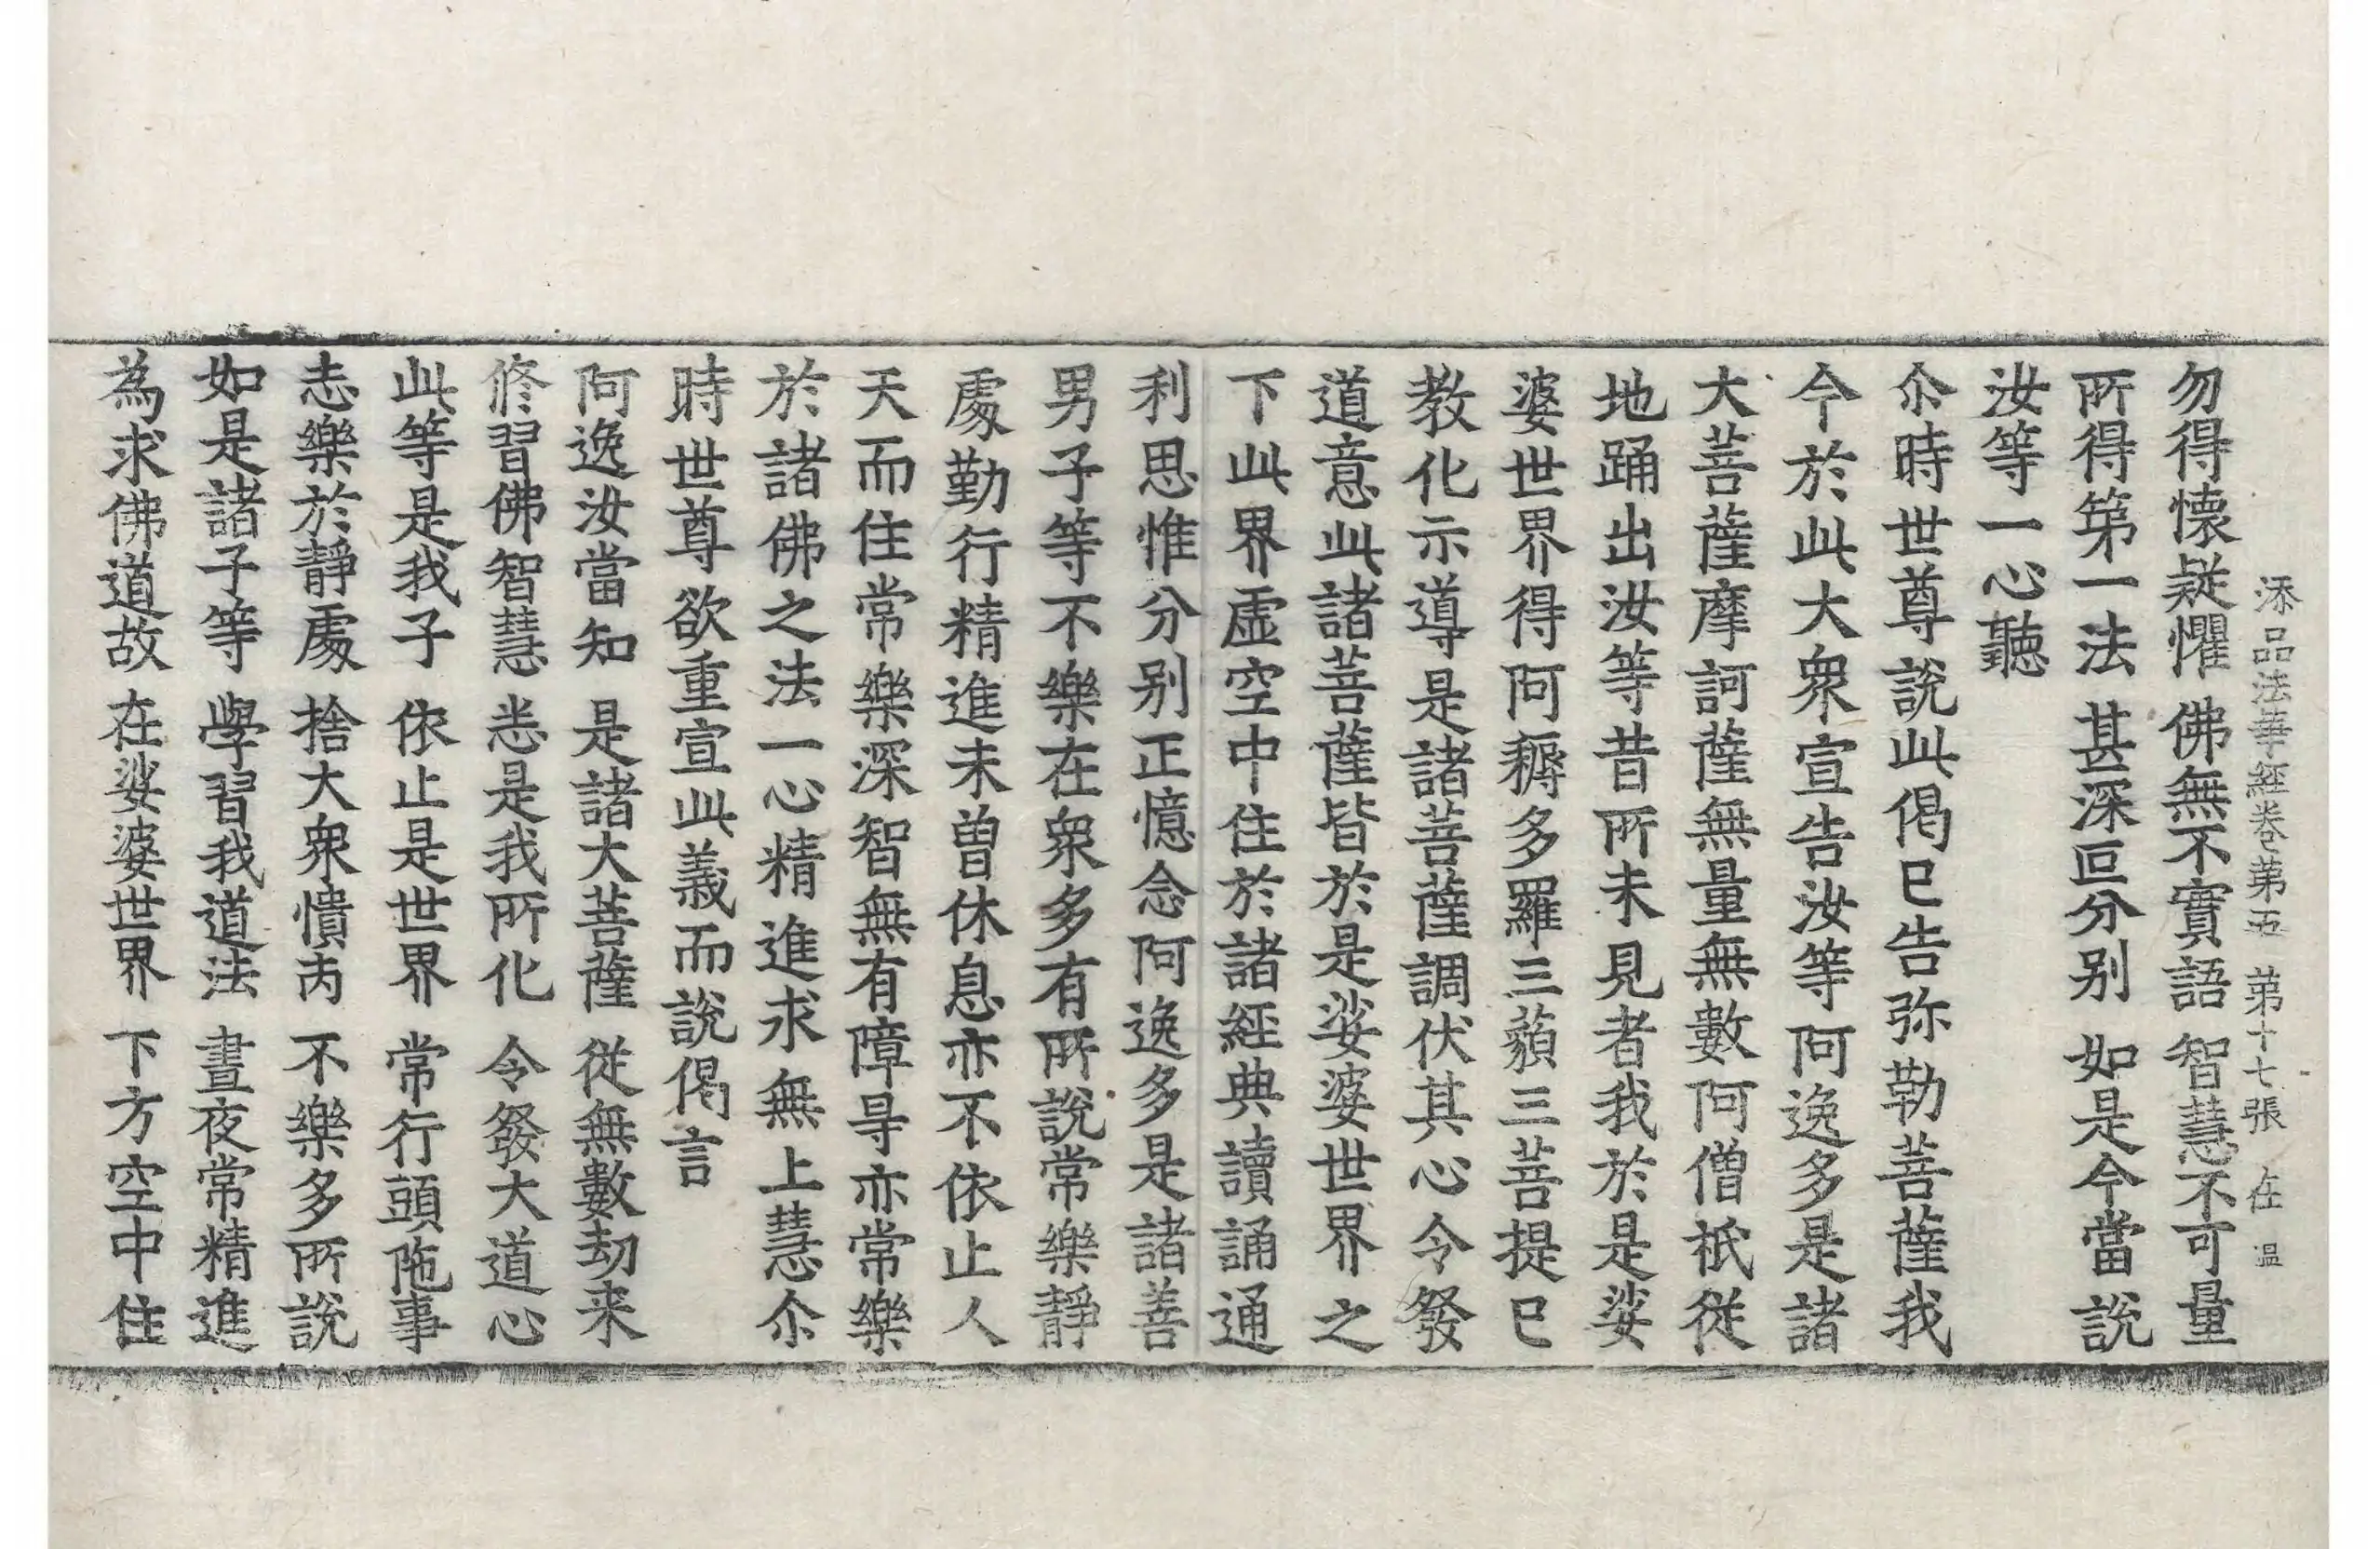 添品法華経卷第五 第十七張 在 温
勿得懷疑懼 佛無不實語 智慧不可量
所得第一法 甚深叵分别 如是今當說
汝等一心聽
尒時世尊說此偈已告弥勒菩薩我
今於此大衆宣告汝等阿逸多是諸
大菩薩摩訶薩無量無數阿僧祇從
地踊出汝等昔所未見者我於是娑
婆世界得阿耨多羅三藐三菩提已
教化示導是諸菩薩調伏其心令發
道意此諸菩薩皆於是娑婆世界之
下此界虛空中住於諸經典讀誦通
利思惟分别正憶念阿逸多是諸善
男子等不樂在衆多有所說常樂靜
處勤行精進未曽休息亦不依止人
天而住常樂深智無有障㝵亦常樂
於諸佛之法一心精進求無上慧尒
時世尊欲重宣此義而說偈言
阿逸汝當知 是諸大菩薩 從無數劫来
修習佛智慧 悉是我所化 令發大道心
此等是我子 依止是世界 常行頭陁事
志樂於靜處 捨大衆憒丙 不樂多所說
如是諸子等 學習我道法 晝夜常精進
為求佛道故 在娑婆世界 下方空中住